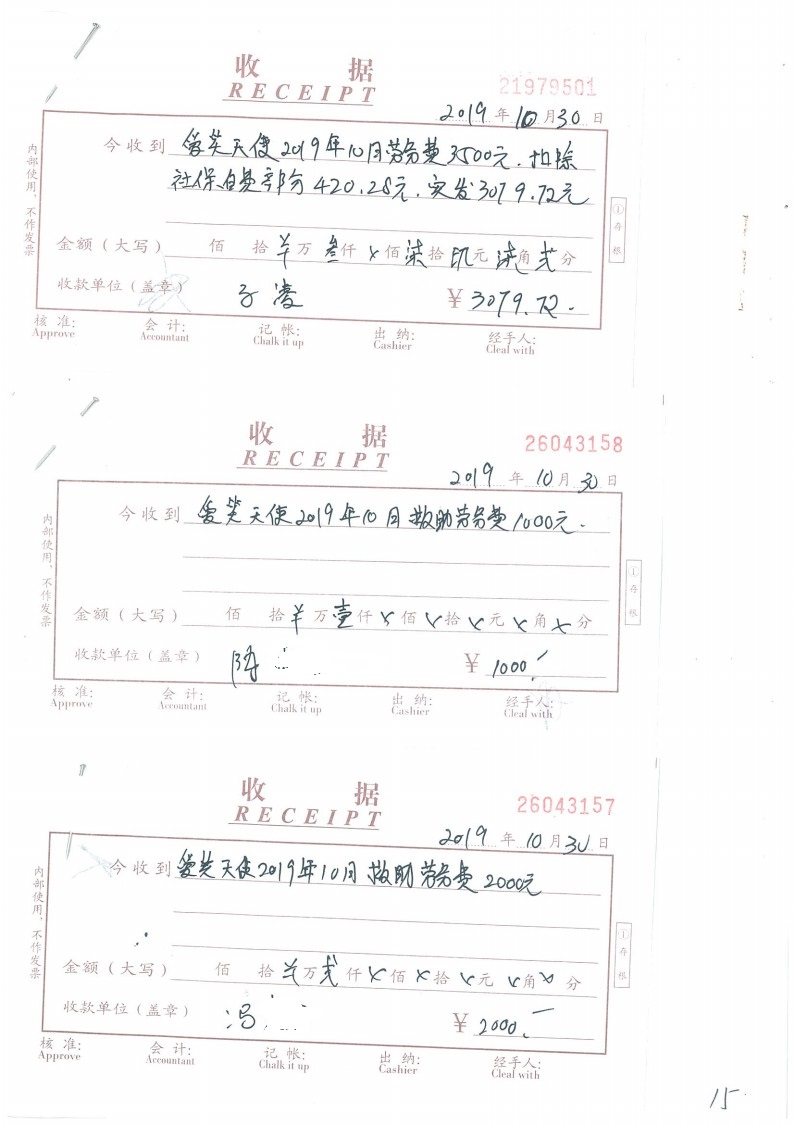 收 据
RECEIPT
21979501
2019 年 10 月 30 日
今收到 爱笑天使2019年10月劳务费3500元，扣除
社保自费部分420.28元，实发3079.72元
金额（大写） 佰 拾 羊 万 叁 仟 x 佰 柒 拾 玖 元 柒 角 贰 分
收款单位（盖章） ¥ 3079.72.
核 准: 会 计: 记 帐: 出 纳: 经手人:
Approve Accountant Chalk it up Cashier Cleal with
内部使用，不作发票
①存根
收 据
RECEIPT
26043158
2019 年 10 月 30 日
今收到 爱笑天使2019年10月救助劳务费1000元.
金额（大写） 佰 拾 羊 万 壹 仟 x 佰 x 拾 x 元 x 角 x 分
收款单位（盖章） 陈 ¥ 1000.-
核 准: 会 计: 记 帐: 出 纳: 经手人:
Approve Accountant Chalk it up Cashier Cleal with
内部使用，不作发票
①存根
收 据
RECEIPT
26043157
2019 年 10 月 30 日
今收到 爱笑天使2019年10月救助劳务费2000元
金额（大写） 佰 拾 羊 万 贰 仟 x 佰 x 拾 x 元 x 角 x 分
收款单位（盖章） 冯 ¥ 2000.-
核 准: 会 计: 记 帐: 出 纳: 经手人:
Approve Accountant Chalk it up Cashier Cleal with
内部使用，不作发票
①存根
15